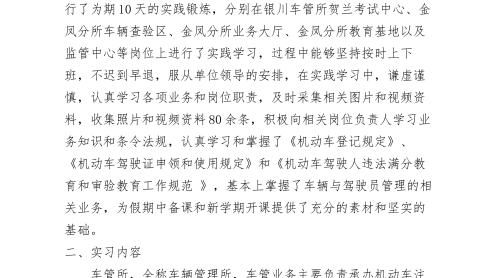 行了为期 10 天的实践锻炼，分别在银川车管所贺兰考试中心、金
凤分所车辆查验区、金凤分所业务大厅、金凤分所教育基地以及
监管中心等岗位上进行了实践学习，过程中能够坚持按时上下
班，不迟到早退，服从单位领导的安排，在实践学习中，谦虚谨
慎，认真学习各项业务和岗位职责，及时采集相关图片和视频资
料，收集照片和视频资料 80 余条，积极向相关岗位负责人学习业
务知识和条令法规，认真学习和掌握了《机动车登记规定》、
《机动车驾驶证申领和使用规定》和《机动车驾驶人违法满分教
育和审验教育工作规范 》，基本上掌握了车辆与驾驶员管理的相
关业务，为假期中备课和新学期开课提供了充分的素材和坚实的
基础。
二、实习内容
车管所，全称车辆管理所，车管业务主要负责承办机动车注